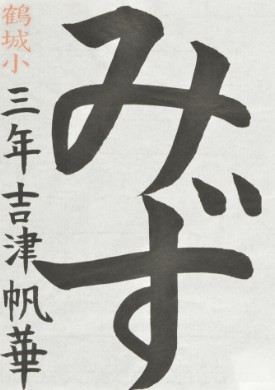 みず
鶴城小
三年吉津帆華